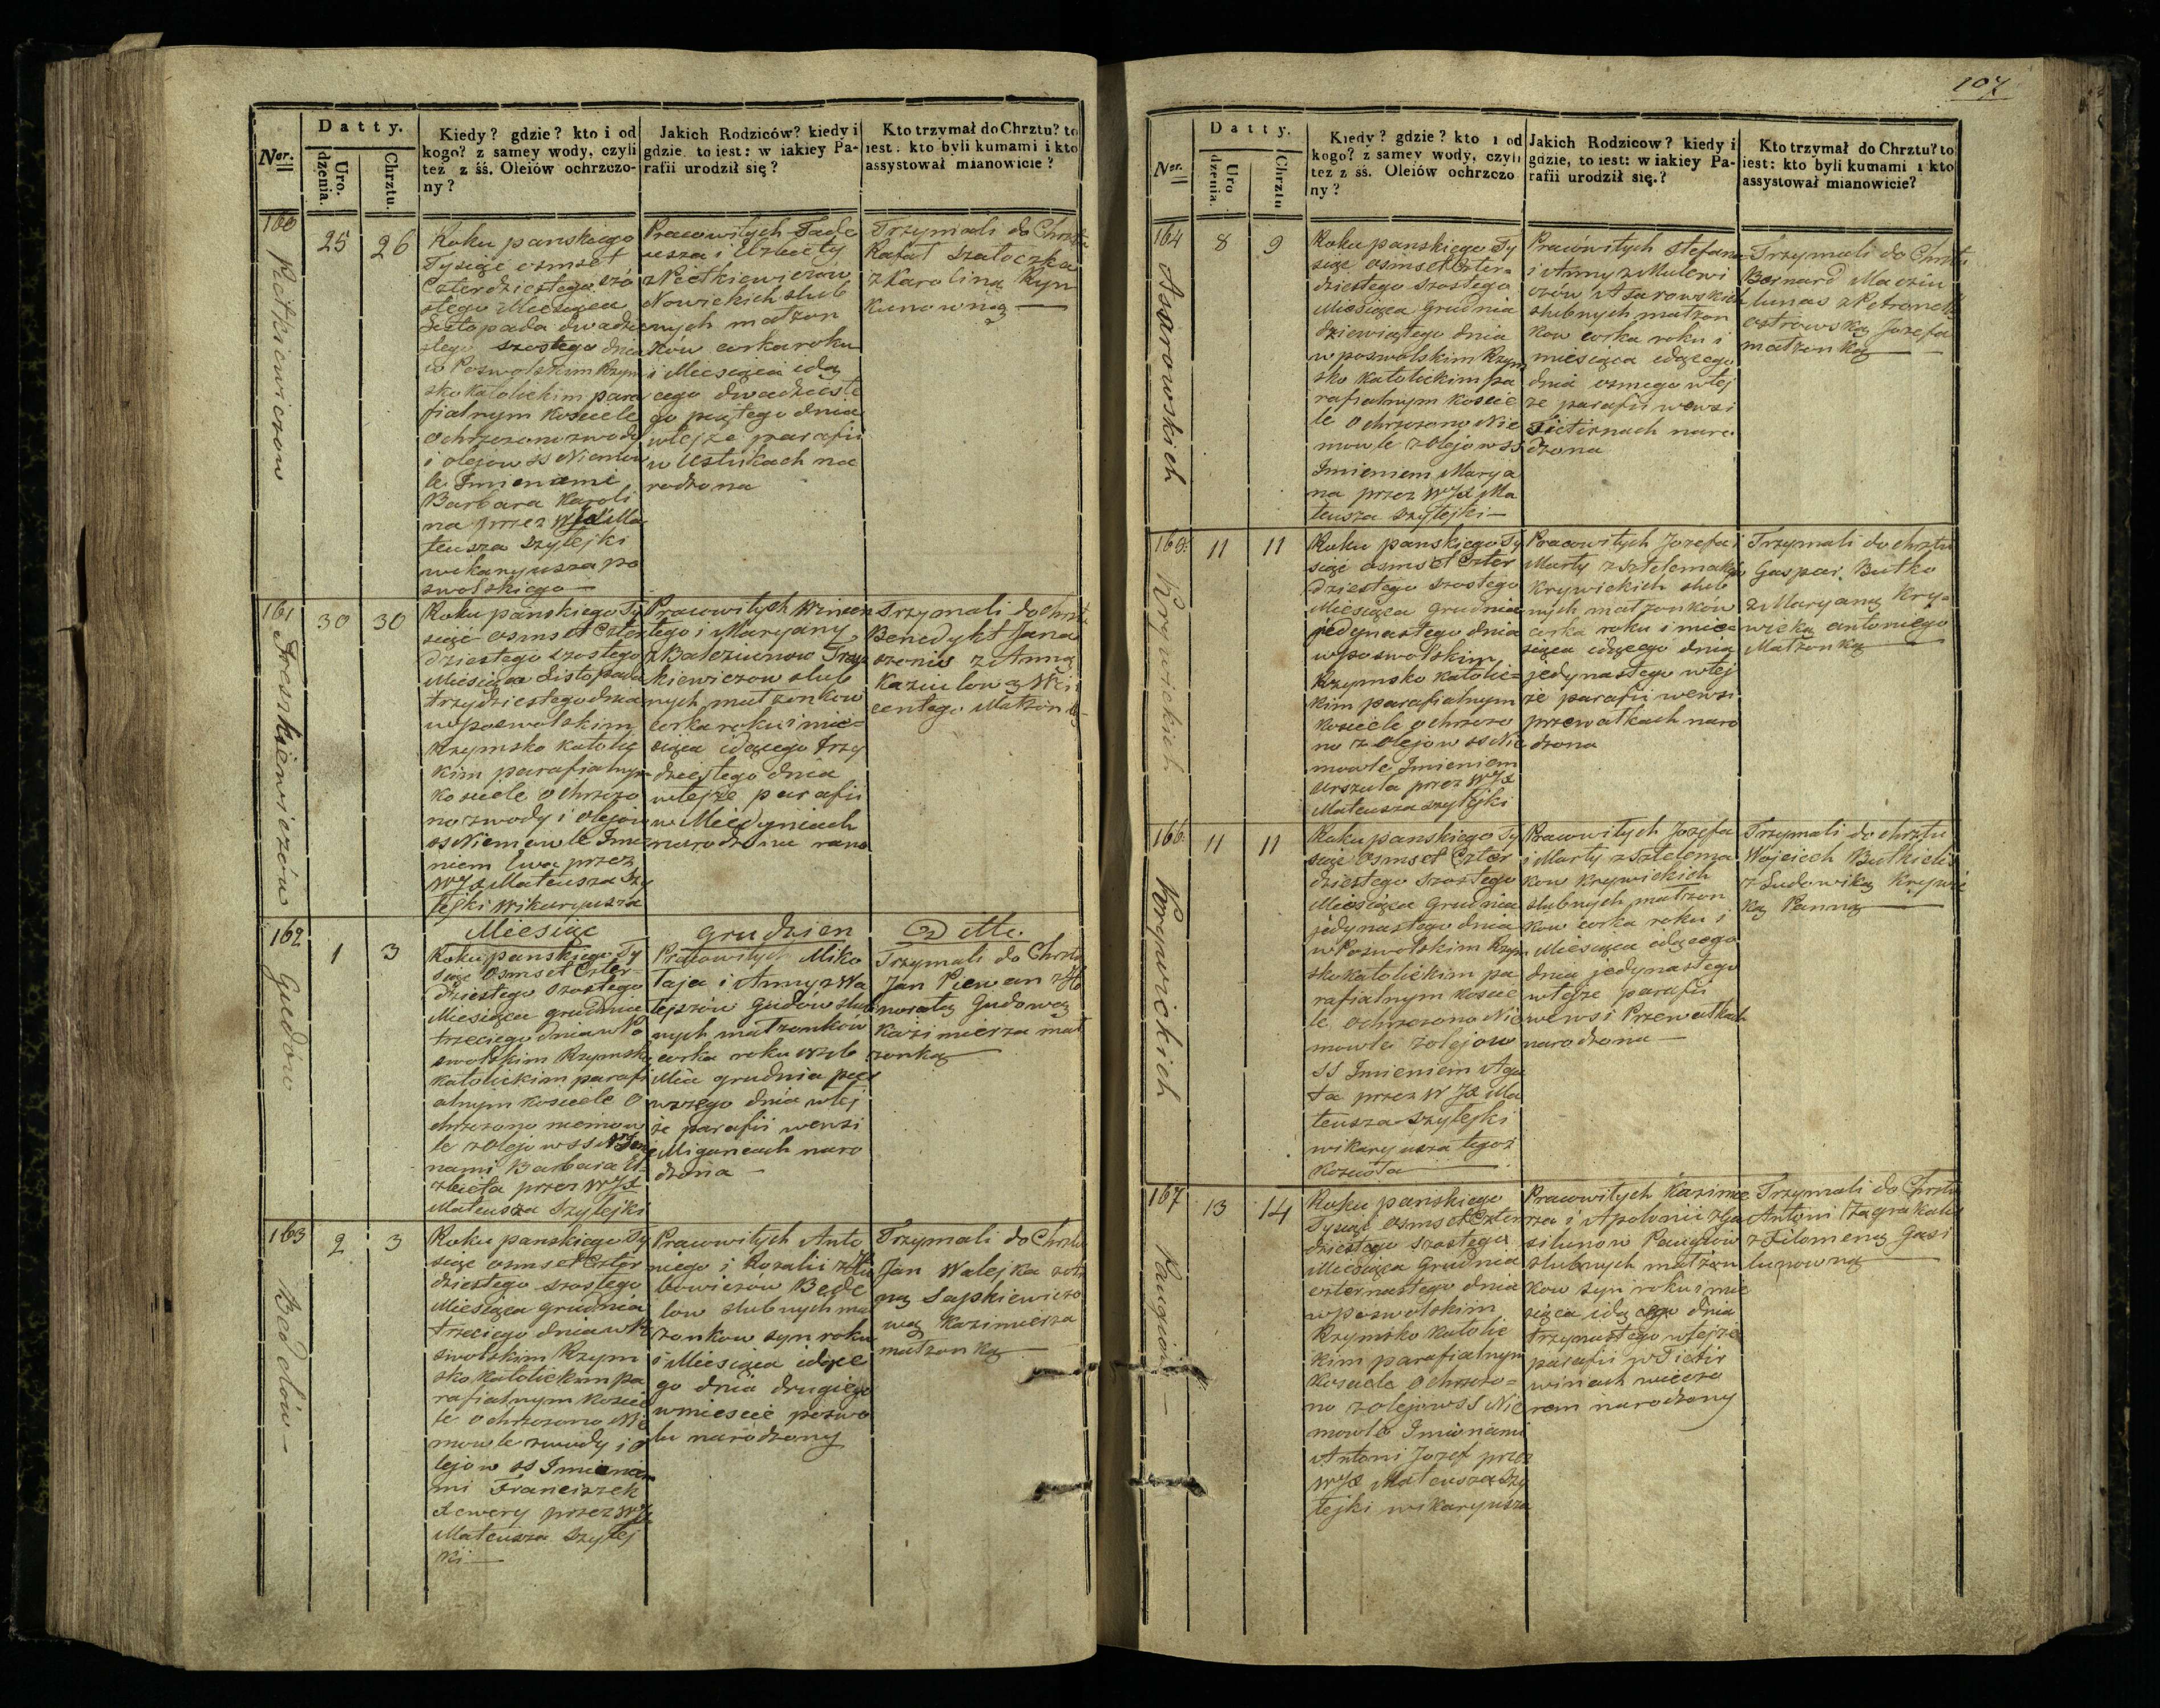 107
Datty.
Ner.
Uro.
dzenia.
Chrztu.
Kiedy? gdzie? kto i od
kogo? z samey wody, czyli
tez z śś. Oleiów ochrzczo-
ny?
Jakich Rodziców? kiedy i
gdzie, to iest: w iakiey Pa-
rafii urodził się?
Kto trzymał do Chrztu? to
iest: kto byli kumami i kto
assystował mianowicie?
160
25
26
Roku panskiego
Tysiąc osmset
Czterdziestego szo
stego Miesiąca
Listopada dwadzie
stego szostego dnia
w Poswolskim Rzym
sko katolickim para
fialnym kosciele
ochrzczono zwody
i olejow ss Niemow
le Imionami
Barbara Karoli
na przez WJX Ma
teusza Szylejki
wikaryusza po
swolskiego
Pracowitych Tade
usza i Elzbiety
Nowickich slub
nych małzon
ków corka roku
i Miesiąca idą
cego dwadzieste
go piątego dnia
wtejze parafii
w Ustukach na
rodzona
Trzymali do Chrztu
Rafał Szatoczka
z Karoliną Ryn
kunowną
161
Treszkiewiczów
30
30
Roku panskiego Ty
siąc osmset Czter
dziestego szostego
Miesiąca Listopada
trzydziestego dnia
w poswolskim
Rzymsko katolic
kim parafialnym
kosciele ochrzczo
no zwody i olejow
ss Niemowle Imie
niem Ewa przez
WJX Mateusza Szy
lejki Wikaryusza
Pracowitych Wincen
tego i Maryany
z Balciunow Tresz
kiewiczow slub
nych małzonkow
corka roku i mie=
siąca idącego trzy
dziestego dnia
wtejże parafii
w Miedyniach
narodzona rano
Trzymali do Chrztu
Benedykt Jana
szonis z Anną
Kaziulową Win
centego Małzonką
Miesiąc
Grudzien
Ditto
162
Gudów
1
3
Roku panskiego Ty
siąc osmset Czter
dziestego szostego
Miesiąca grudnia
trzeciego dnia w Po
swolskim Rzymsko
katolickim parafi
alnym kosciele o
chrzczono niemow
le z olejow ss Imio
nami Barbara El
zbieta przez WJX
Mateusza Szylejki
Pracowitych Miko
łaja i Anny z Wa
lejszów Gudów slub
nych małzonków
Mca grudnia pier
wszego dnia wtej
że parafii wewsi
Migancach naro
dzona
Trzymali do Chrztu
Jan Piewcan z Ho
noratą Gudową
Kazimierza mał
zonką
163
Bedelów
2
3
Roku panskiego Ty
siąc osmset Czter
dziestego szostego
Miesiąca grudnia
trzeciego dnia w Po
swolskim Rzym
sko katolickim pa
rafialnym koscie
le ochrzczono Nie
mowle zwody i o
lejow ss Imiona
mi Franciszek
Xewery przez WJX
Mateusza Szylej
ki
Pracowitych Anto
niego i Rozalii z Hu
bowiczów Bede
low slubnych mał
zonkow syn roku
i Miesiąca idące
go dnia drugiego
w miescie poswo
lu narodzony
Trzymali do Chrztu
Jan Walejka zoti
ną Sapkiewiczo
wą Kazimierza
małzonką
Datty.
Ner.
Uro
dzenia.
Chrztu
Kiedy? gdzie? kto i od
kogo? z samey wody, czyli
tez z śś. Oleiów ochrzczo
ny?
Jakich Rodzicow? kiedy i
gdzie, to iest: w iakiey Pa-
rafii urodził się.?
Kto trzymał do Chrztu? to
iest: kto byli kumami i kto
assystował mianowicie?
164
Asarowskich
8
9
Roku panskiego Ty
siąc osmset Czter=
dziestego szostego
Miesiąca Grudnia
dziewiątego dnia
w poswolskim Rzym
sko katolickim pa
rafialnym koscie
le ochrzczono Nie
mowle z olejow ss
Imieniem Marya
na przez WJX Ma
teusza Szylejki
Pracowitych Stefana
i Anny z Mulewi
czów Asarowskich
slubnych małzon
kow corka roku i
miesiąca idącego
dnia osmego wtej
ze parafii wewsi
Tietirnach naro
dzona
Trzymali do Chrztu
Bernard Macziu
lunas z Petronelą
ostrowską Jozefa
małzonką
165
Krywickich
11
11
Roku panskiego Ty
siąc osmset Czter
dziestego szostego
Miesiąca Grudnia
jedynastego dnia
w poswolskim
Rzymsko katolic=
kim parafialnym
kosciele ochrzczo
no z olejow ss Nie
mowle Imieniem
Urszula przez WJX
Mateusza Szylejki
Pracowitych Jozefa i
Marty z Sztelemakow
Krywickich slub
nych małzonków
corka roku i mie=
siąca idącego dnia
jedynastego wtej
że parafii wewsi
przewałkach naro
dzona
Trzymali do chrztu
Gaspar Butko
z Maryaną Kry=
wicką antoniego
Małzonką
166
Krywickich
11
11
Roku panskiego Ty
siąc osmset Czter
dziestego szostego
Miesiąca Grudnia
jedynastego dnia
w Poswolskim Rzym
sko katolickim pa
rafialnym koscie
le ochrzczono Nie
mowle z olejow
ss Imieniem Aga
ta przez WJX Ma
teusza Szylejki
wikaryusza tegoż
Koscioła
Pracowitych Jozefa
i Marty z Sztelema
kow Krywickich
slubnych małzon
kow corka roku i
Miesiąca idącego
dnia jedynastego
wtejze parafii
wewsi Przewałkach
narodzona
Trzymali do chrztu
Wojciech Butkielis
z Ludowiką Krywic
ką Panną
167
Paugiów
13
14
Roku panskiego
Tysiąc osmset Czter
dziestego szostego
Miesiąca Grudnia
czternastego dnia
w poswolskim
Rzymsko katolic
kim parafialnym
kosciele ochrzczo=
no z olejow ss Nie
mowle Imionami
Antoni Jozef przez
WJX Mateusza Szy
lejki wikaryusza
Pracowitych Kazimie
rza i Apolonii z Ga
silunow Paugiow
slubnych małzon
kow syn roku i mie
siąca idącego dnia
trzynastego wtejże
parafii w Tietir
winach wieczo
rem narodzony
Trzymali do Chrztu
Antoni Zagrakalis
z Filomeną Gasi
lunowną